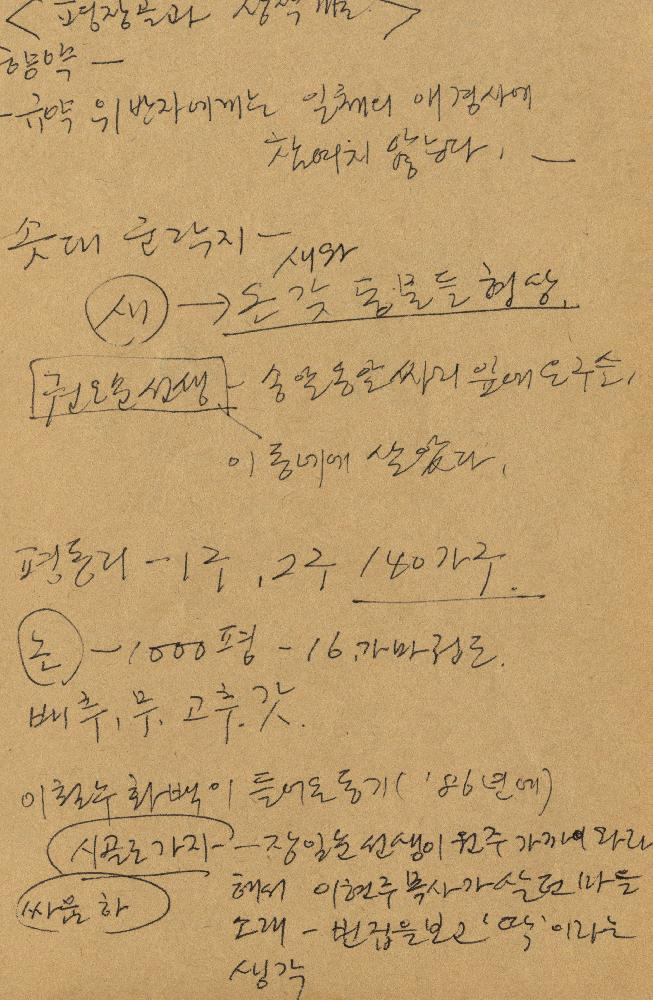 향약 —
- 규약 위반자에게는 일체의 애경사에
참여치 않는다. —
솟대 끝락지 —
새와
새 → 온갖 동물들 형상.
권오술선생 - 송알송알 싸리 잎에 은구슬,
이 동네에 살았다.
평동리 - 1구, 2구 140가구.
논 - 1000평 - 16가마정도.
배추, 무, 고추, 갓.
이철수 화백이 들어온 동기 ('86년에)
시골로 가자 - - 장일순 선생이 원주 가까이 와라
해서 이현주 목사가 살던 마을
싸움 하
소개 - 빈집을 보고 '딱' 이라는
생각